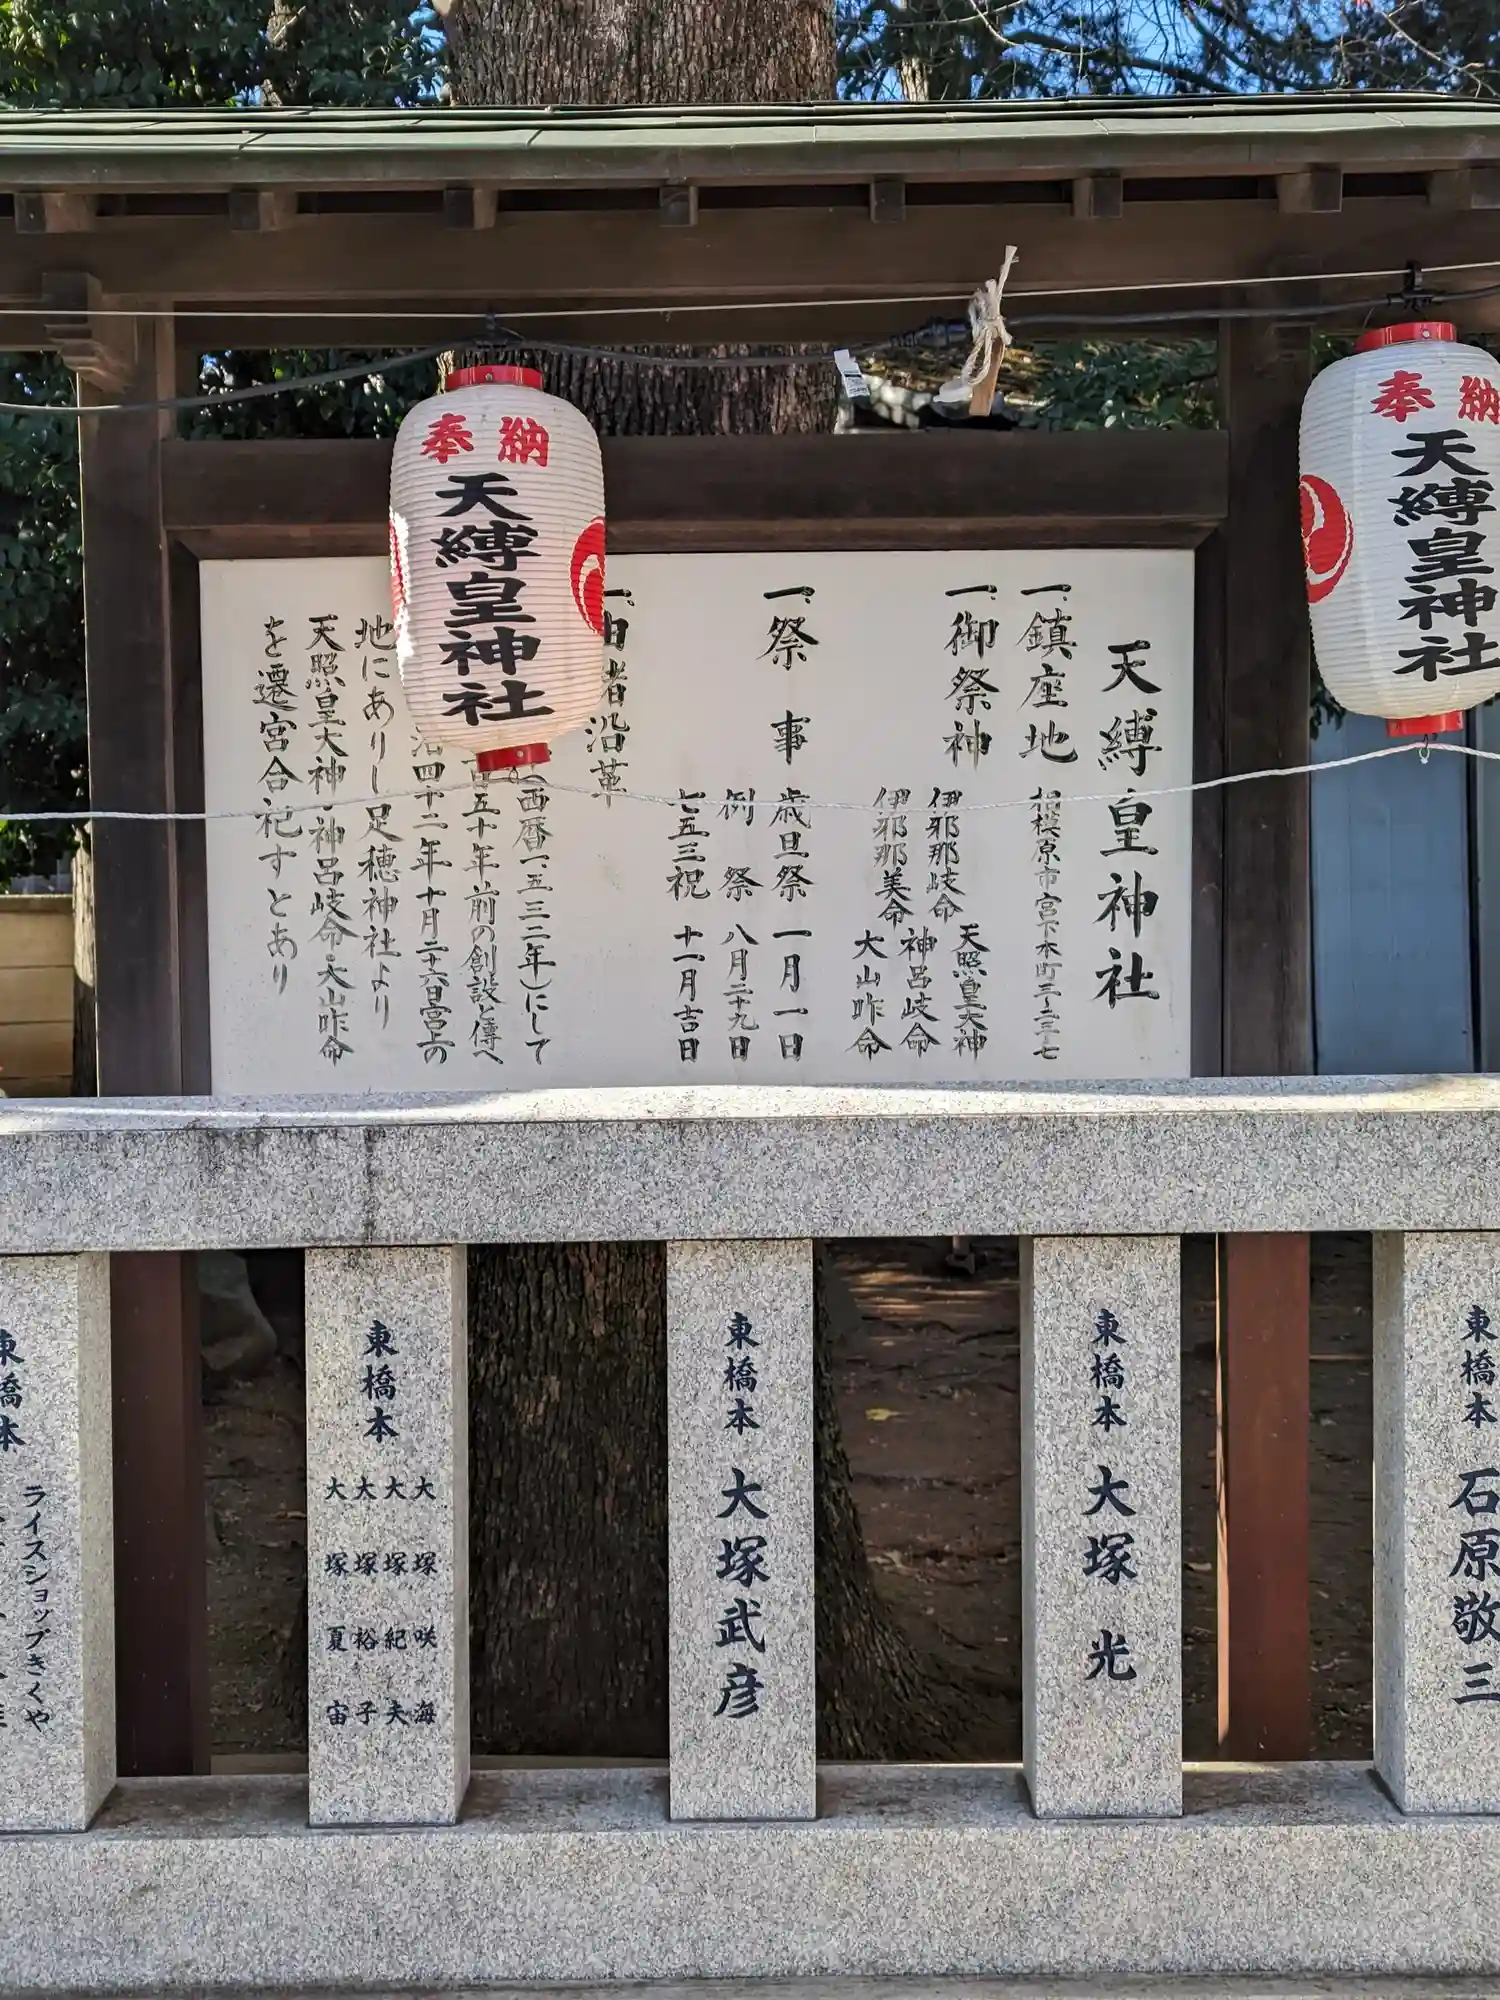 奉納
天縛皇神社
奉納
天縛皇神社
天縛皇神社
一、鎮座地
相模原市宮下本町三-二三-七
一、御祭神
伊邪那岐命
天照皇大神
神呂岐命
伊邪那美命
大山咋命
一、祭事
歳旦祭 一月一日
例祭 八月二十九日
七五三祝 十一月吉日
一、由緒沿革
西暦一、五三二年)にして
五十年前の創設と傳へ
治四十二年十月二十六日宮上の
地にありし足穂神社より
天照皇大神・神呂岐命・大山咋命
を遷宮合祀すとあり
東橋本
石原敬三
東橋本
大塚光
東橋本
大塚武彦
東橋本
大塚咲海
大塚紀夫
大塚裕子
大塚夏宙
東橋本
ライスショップきくや